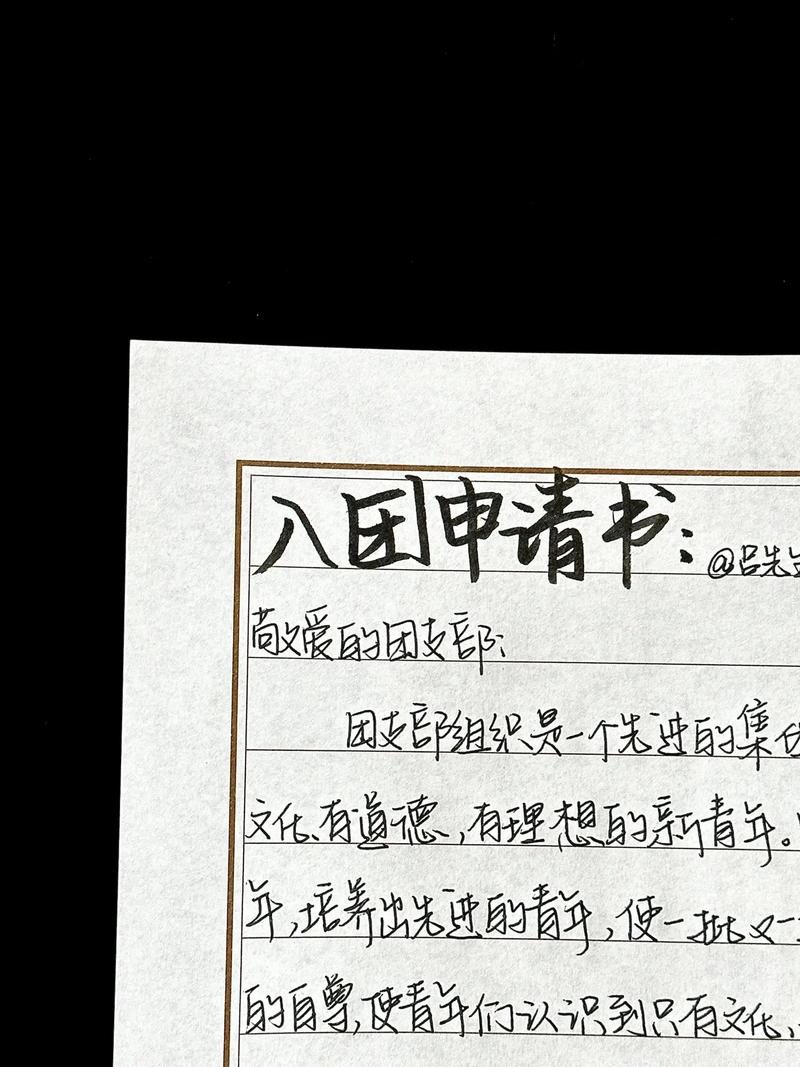 入团申请书:@吕先生
敬爱的团支部:
团支部组织是一个先进的集
文化、有道德,有理想的新青年。
年,培养出先进的青年,使一批又一
的自尊,使青年们认识到只有文化、